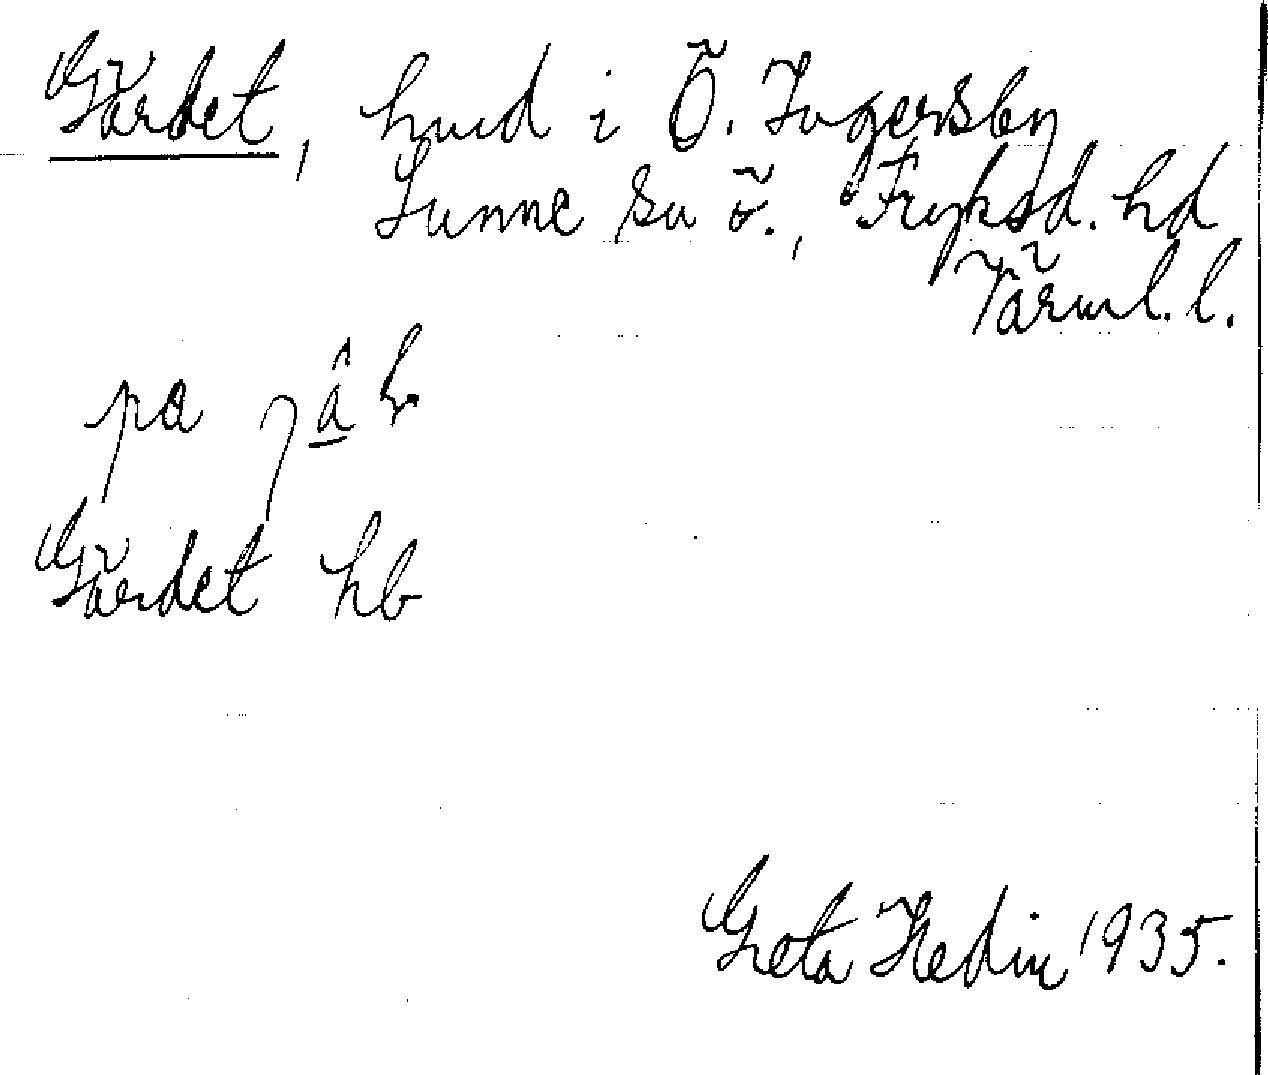 Gärdet, hmd i Ö. Ingersby
Sunne sn ö., Fryksd. hd
Värml. l.
pa
Gärdet hb
Greta Hedin 1935.